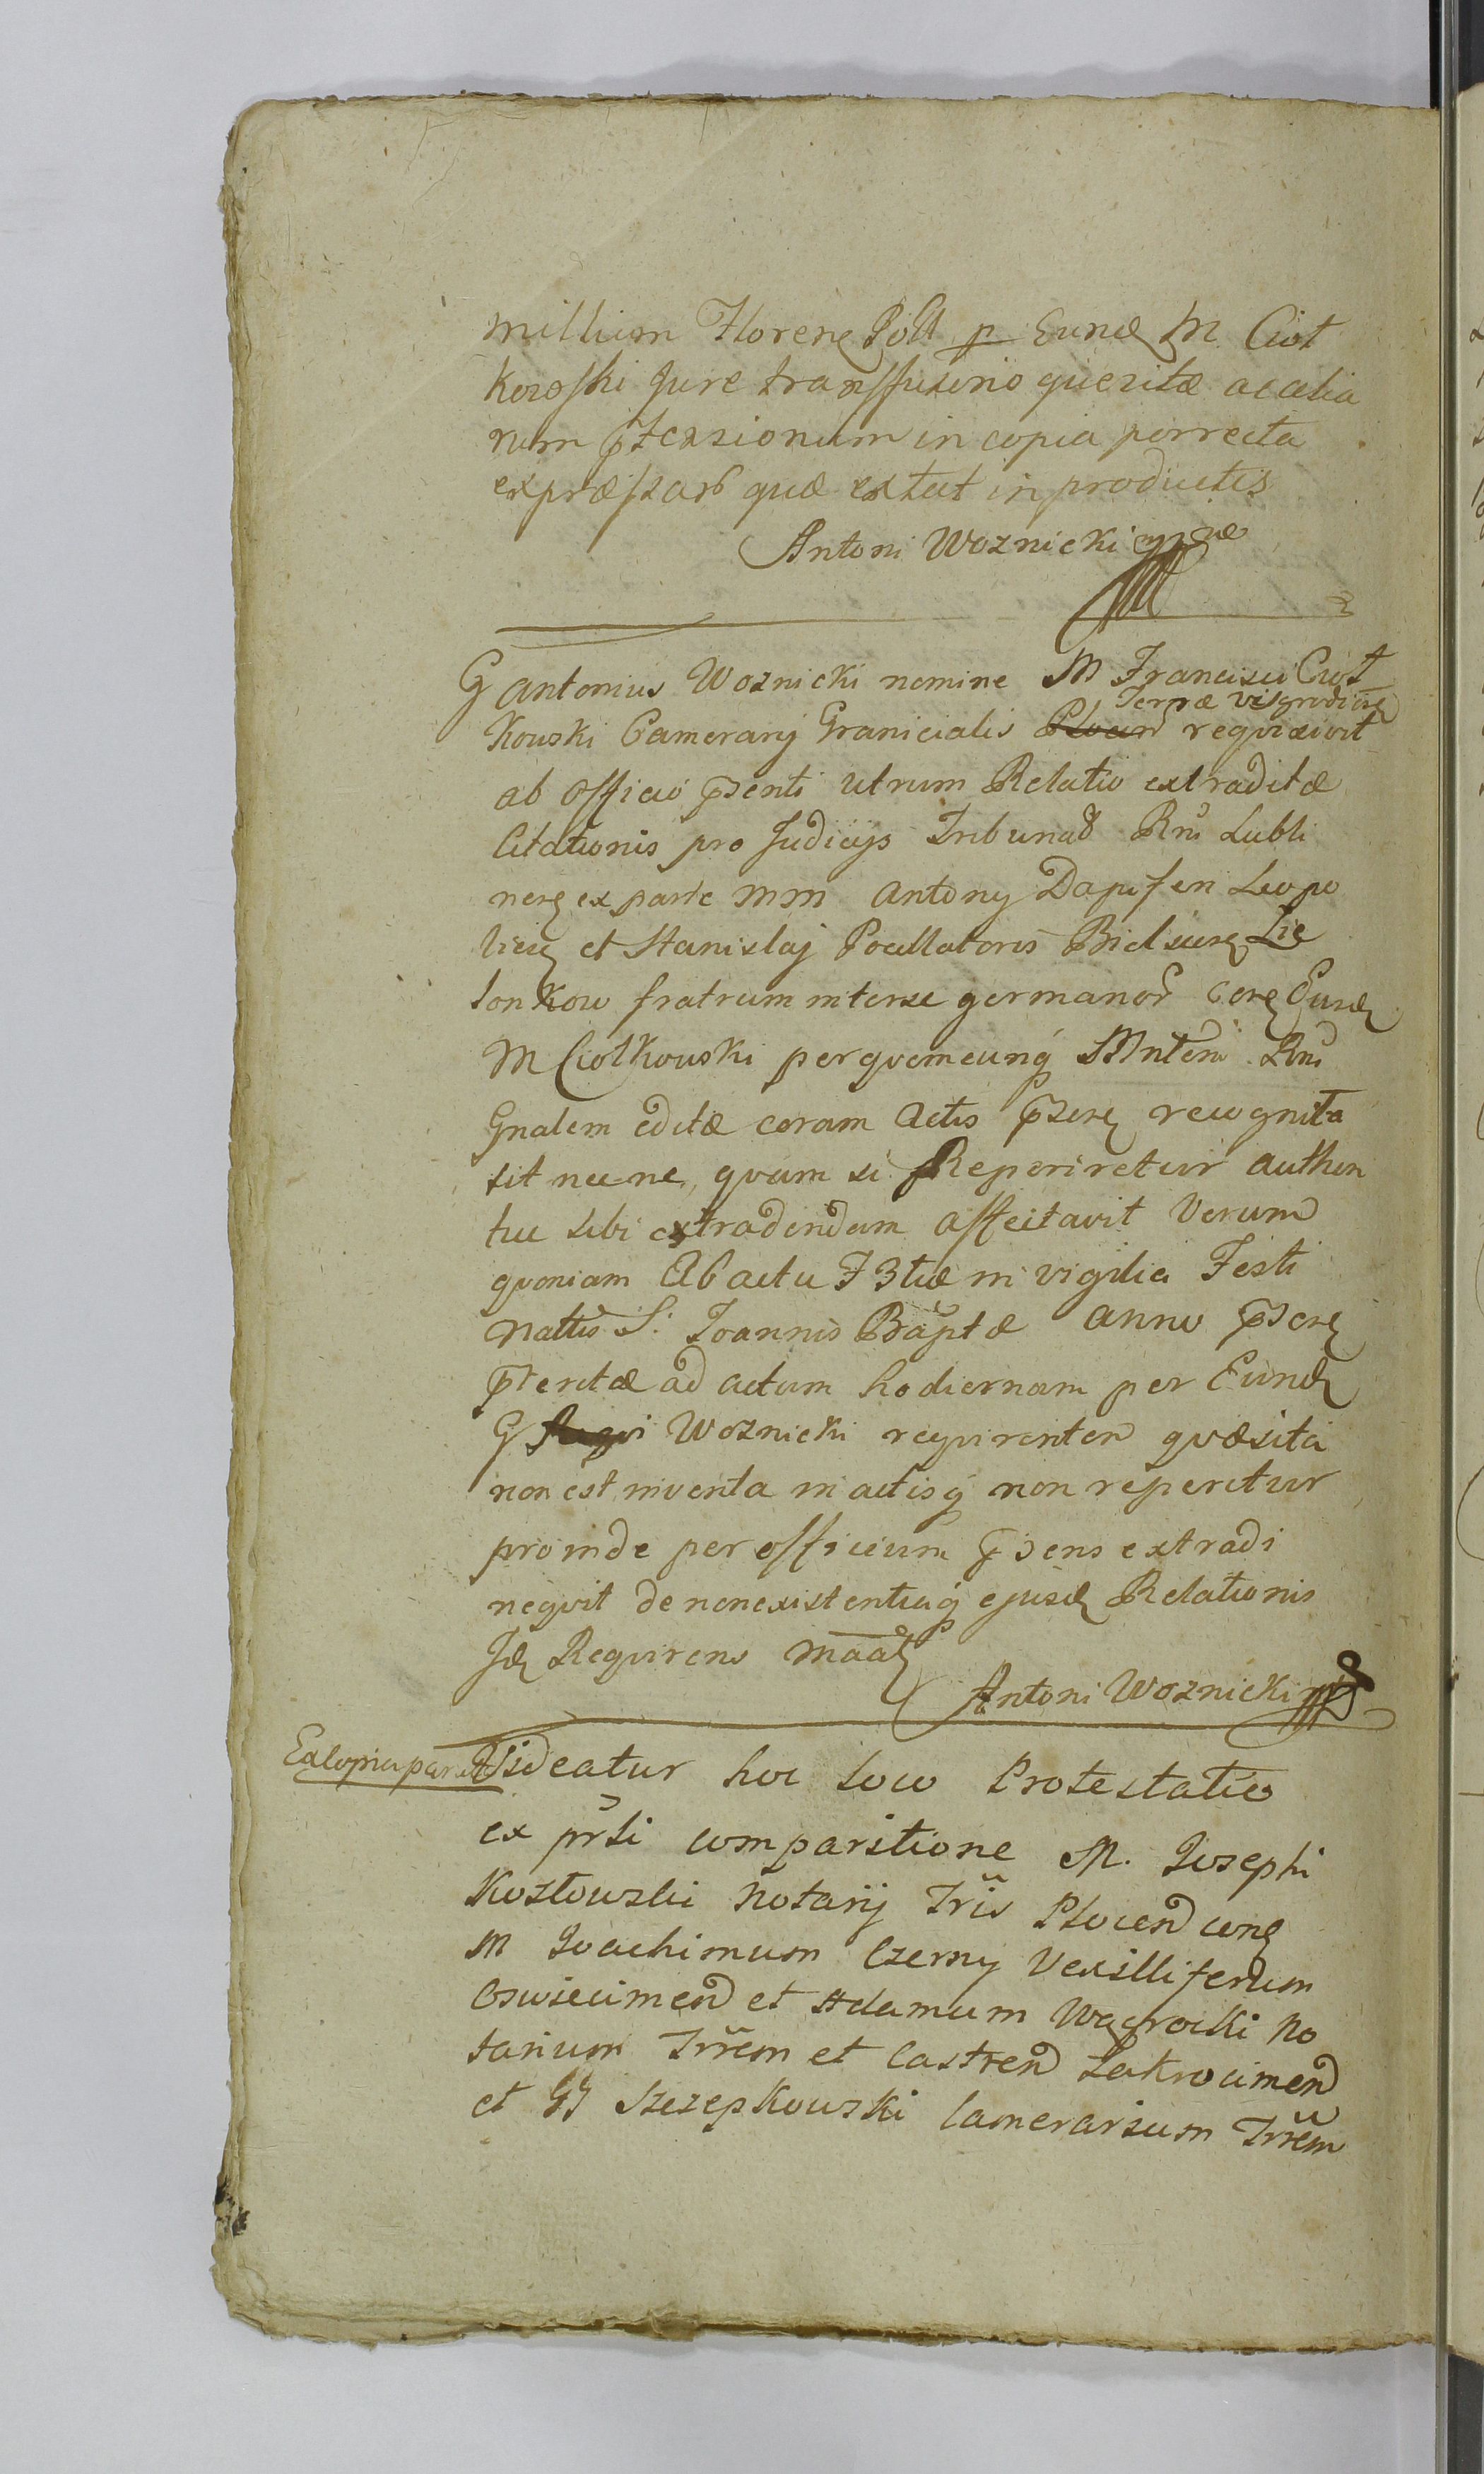 millium Floren Poll p Eund M. Ciot
kowski Jure transfusorio quesitæ ac alia
rum ptensionum in copia porrecta
expressar quæ extat in productis
Antoni Woznicki
G Antonius Woznicki nomine M Francisci Ciot
Terræ Visgrodien
kowski Camerarij Granicialis Plocen requisivit
ab Officio psenti utrum Relatio extraditæ
Citationis pro Judicijs Tribunal Rni Lubli
nen ex parte MM Antonij Dapiferi Leopo
lien et Stanislaj Pocillatoris Bielscen Zie
lonkow fratrum interse germanor con Eund
M Ciołkowski perquemcunq Mntem Rni
Gnalem editæ coram Actis psen recognita
sit nec ne, quam si Reperiretur authen
tice sibi extradendam affectavit Verum
quoniam Ab actu F 3tiæ in vigilia Festi
Nattis S: Joannis Baptæ anno psen
pteritæ ad actum hodiernam per Eund
G Requi Woznicki requirenten quæsita
non est inventa in actisq non reperitur
proinde per officium psens extradi
nequit de nonexistentiaq ejusd Relationis
Id Requirens
Antoni Woznicki
Ex copia
Videatur hoc loco Protestatio
ex prsti comparitione M. Josephi
Kozłowski Notarij Trris Plocen con
M Joachimum Czerny Vexilliferum
Oswiecimen et Adamum Wągrocki No
tarium Trrem et Castren Zakrocimen
et GG Szczepkowski Camerarium Trrem